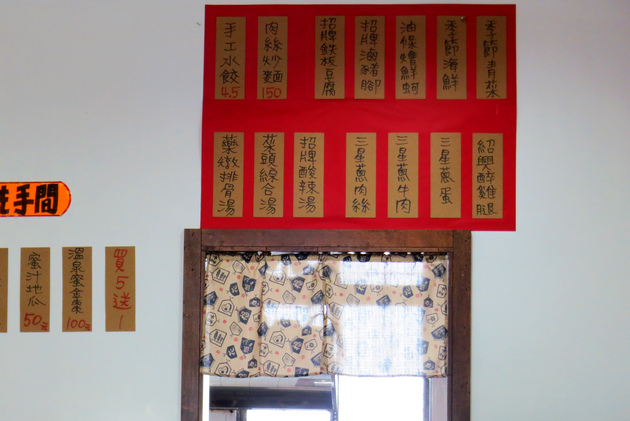 季節青菜
季節海鮮
油條寶鮮蚵
招牌滷豬腳
招牌鉄板豆腐
肉絲炒麵150
手工水餃4.5
紹興醉雞腿
三星蔥蛋
三星蔥牛肉
三星蔥肉絲
招牌酸辣湯
菜頭綜合湯
藥燉排骨湯
手間
買5送1
溫泉蜜金棗100元
蜜汁地瓜50元